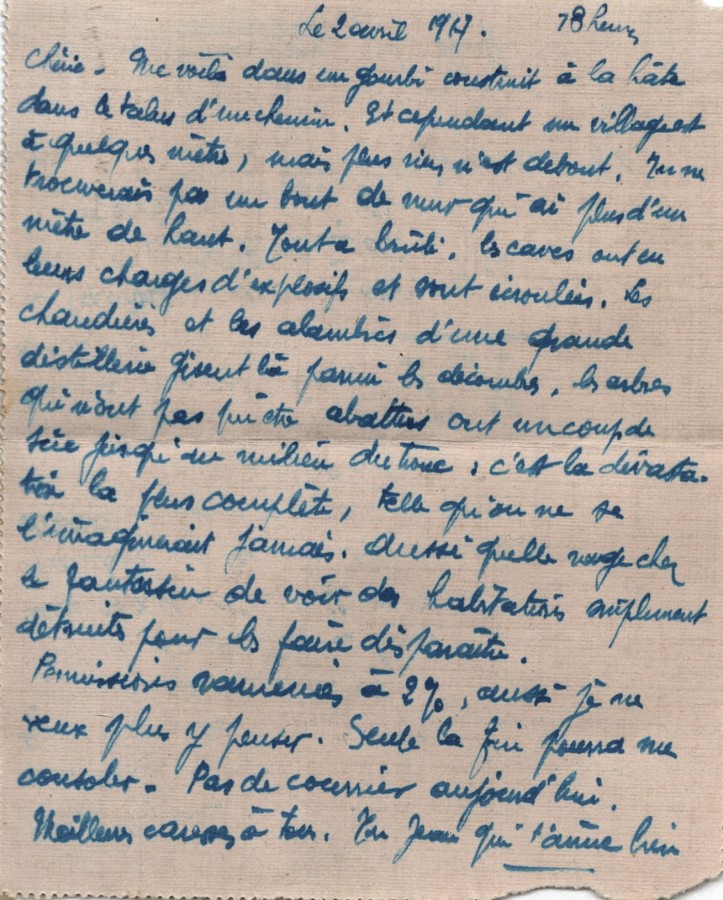 Le 2 avril 1917. 18 heures
Chérie. Me voilà dans un gourbi construit à la hâte
dans le talus d'un chemin. Et cependant un village est
à quelques mètres, mais plus rien n'est debout. Tu ne
trouverais pas un bout de mur qui ai plus d'un
mètre de haut. Tout a brûlé, les caves ont eu
leurs charges d'explosifs et sont écroulées. Les
chaudières et les alambics d'une grande
distillerie gisent là parmi les décombres, les arbres
qui n'ont pas pu être abattus ont un coup de
scie jusqu'au milieu du tronc ; c'est la dévasta-
tion la plus complète, telle qu'on ne se
l'imaginerait jamais. Aussi quelle rage chez
le fantassin de voir des habitations simplement
détruites pour les faire disparaître.
Permissions ramenées à 2%, aussi je ne
veux plus y penser. Seule la fin pourra me
consoler. Pas de courrier aujourd'hui.
Meilleures caresses à tous. Ton Jean qui t'aime bien